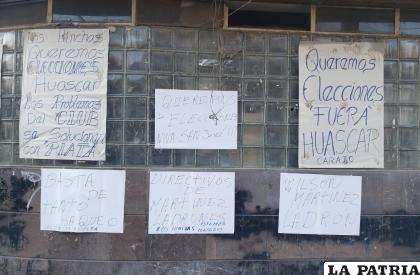 Mis Hinchas
Queremos
ELECCIONES
Huascar
Los Problemas
Del CLUB
se Solucionan
Con PLATA
QUEREMOS
ELECCIONES
VIVA SAN José!!!
Queremos
Elecciones
FUERA
HUASCAR
CARAJO
BASTA
DE
TANTO
SAQUEO
DIRECTIVOS
DE
MARTINEZ
LADRONES
WILSON
MARTINEZ
LADRON
LA PATRIA